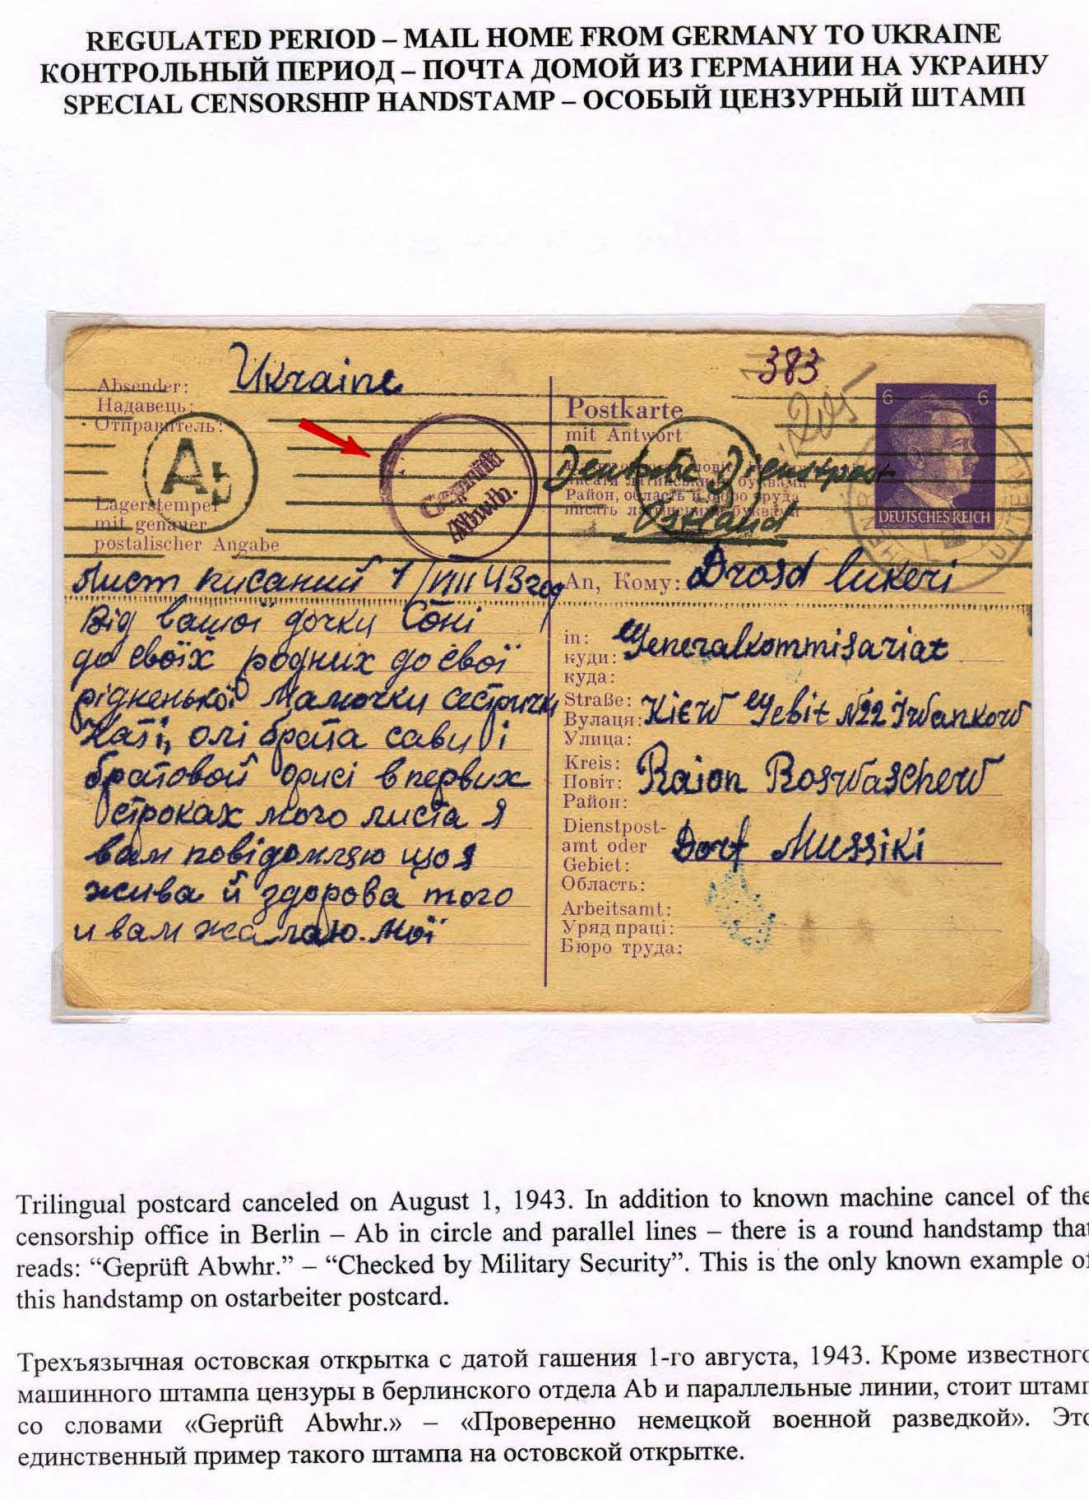 REGULATED PERIOD – MAIL HOME FROM GERMANY TO UKRAINE
КОНТРОЛЬНЫЙ ПЕРИОД – ПОЧТА ДОМОЙ ИЗ ГЕРМАНИИ НА УКРАИНУ
SPECIAL CENSORSHIP HANDSTAMP – ОСОБЫЙ ЦЕНЗУРНЫЙ ШТАМП
Ukraine
Absender:
Надавець:
Отправитель:
Ab
Lagerstempel
mit genauer
postalischer Angabe
Geprüft
Abwhr.
Лист писаний 1/VIII 43 год
Від вашої дочки Соні
до своїх родних до свої
рідненької Мамочки сестрички
Каті, олі брата сави і
братовой орисі в первих
строках мого листа я
вам повідомляю що я
жива й здорова того
и вам жалаю. мої
383
Postkarte
mit Antwort
писати латинськими буквами
Район, область и бюро труда
писать латинскими буквами
Deutsche Dienstpost
Ostland
6 6
DEUTSCHES REICH
An, Кому: Drosd Lukeri
in: Generalkommisariat
куди:
куда:
Straße: Kiew Gebit №22 Iwankow
Вулаця:
Улица:
Kreis: Raion Roswaschew
Повіт:
Район:
Dienstpost-
amt oder Dorf Mussiki
Gebiet:
Область:
Arbeitsamt:
Уряд праці:
Бюро труда:
Trilingual postcard canceled on August 1, 1943. In addition to known machine cancel of the
censorship office in Berlin – Ab in circle and parallel lines – there is a round handstamp that
reads: “Geprüft Abwhr.” – “Checked by Military Security”. This is the only known example of
this handstamp on ostarbeiter postcard.
Трехъязычная остовская открытка с датой гашения 1-го августа, 1943. Кроме известного
машинного штампа цензуры в берлинского отдела Ab и параллельные линии, стоит штамп
со словами «Geprüft Abwhr.» – «Проверенно немецкой военной разведкой». Это
единственный пример такого штампа на остовской открытке.